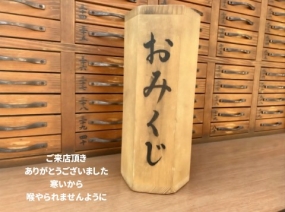 おみくじ
ご来店頂き
ありがとうございました
寒いから
喉やられませんように